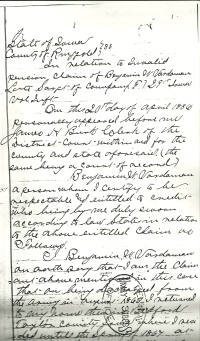 State of Iowa
County of Ringgold } SS
In relation to Invalid
pension claim of Benjamin W Vardaman
late Sargt of Company F/29th Iowa
Vol Inft
On this 20th day of April 1886
personally appeared before me
James H Burk Clerk of the
District Court within and for the
county and state aforesaid (the
same being a court of records)
Benjamin W Vardaman
a person whom I certify to be
respectable & entitled to credit
who being by me duly sworn
according to law states in relation
to the above entitled claim as
follows
I Benjamin W Vardaman
on oath say that I am the claim
ant above mentioned
that on being discharged from
the army in 1865 I returned
to my home Bedford
Taylor County where I resi
ded until the